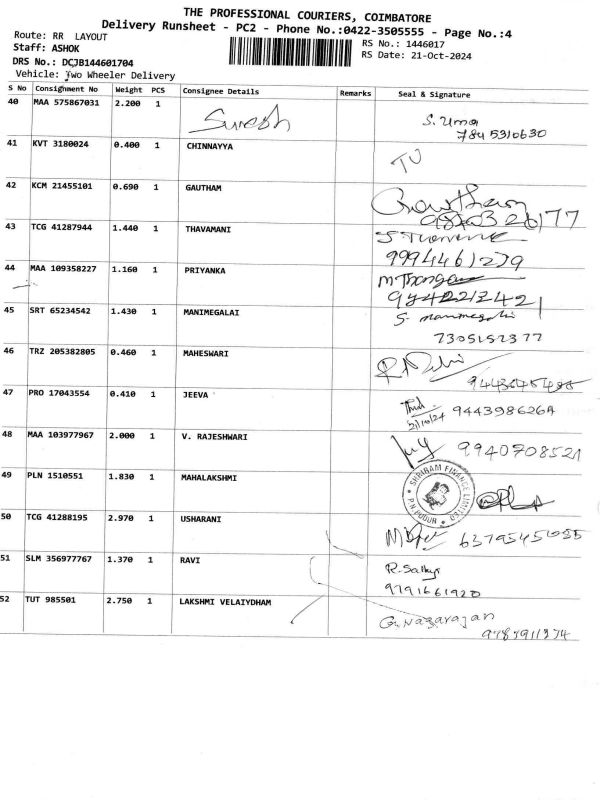 THE PROFESSIONAL COURIERS, COIMBATORE
Delivery Runsheet - PC2 - Phone No.:0422-3505555 - Page No.:4
Route: RR LAYOUT
RS No.: 1446017
Staff: ASHOK
RS Date: 21-Oct-2024
DRS No.: DCJB144601704
Vehicle: Two Wheeler Delivery
S No Consignment No Weight PCS Consignee Details Remarks Seal & Signature
40 MAA 575867031 2.200 1 Suresh S. Uma
7845310630
41 KVT 3180024 0.400 1 CHINNAYYA
42 KCM 21455101 0.690 1 GAUTHAM Gowtham
43 TCG 41287944 1.440 1 THAVAMANI
9994461279
44 MAA 109358227 1.160 1 PRIYANKA
45 SRT 65234542 1.430 1 MANIMEGALAI S. Manimegalai
7305152377
46 TRZ 205382805 0.460 1 MAHESWARI
47 PRO 17043554 0.410 1 JEEVA
21/10/24
48 MAA 103977967 2.000 1 V. RAJESHWARI
49 PLN 1510551 1.830 1 MAHALAKSHMI SHRIRAM FINANCE LIMITED
P N PUDUR
50 TCG 41288195 2.970 1 USHARANI
51 SLM 356977767 1.370 1 RAVI
9791661920
52 TUT 985501 2.750 1 LAKSHMI VELAIYDHAM G. Nagarajan